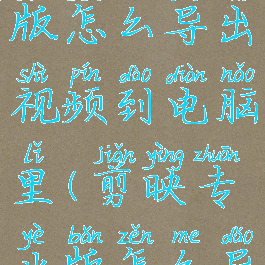 版怎么导出
shì pín dào diàn nǎo
视频到电脑
lǐ jiǎn yìng zhuān
里(剪映专
yè bǎn zěn me dǎo
业版怎么导